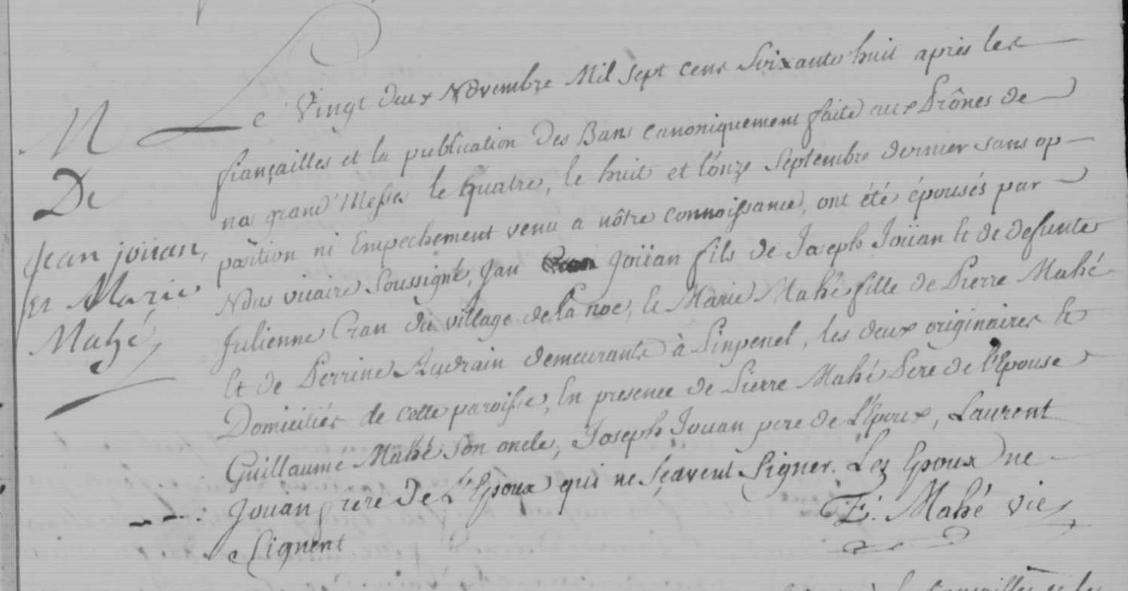 M
De
Jean joüan,
et Marie
Mahé
Le Vingt deux Novembre Mil sept cens Soixante huit après les
fiançailles et la publication des Bans canoniquement faite aux Prônes de
nos grand'Messes le quatre, le huit et l'onze Septembre dernier sans op-
position ni Empechement venu a nôtre connoissance, ont été épousés par
Nous vicaire Soussigné, Jan Joüan fils de Joseph Joüan & de defunte
Julienne Cran du village de la noe, & Marie Mahé fille de Pierre Mahé
et de Perrine Audrain demeurants à Pinpenel, les deux originaires &
Domiciliés de cette paroisse, En presence de Pierre Mahé Pere de l'Epouse
Guillaume Mahé son oncle, Joseph Jouan pere de l'Epoux, Laurent
Jouan frere de l'Epoux qui ne sçavent Signer. Les Epoux ne
Signent
F. Mahé vic